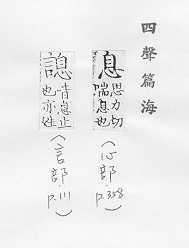 四聲篇海
息
思力切
喘息也
(心部.p.358)
諰
言息止
也亦姓
(言部.p.111)